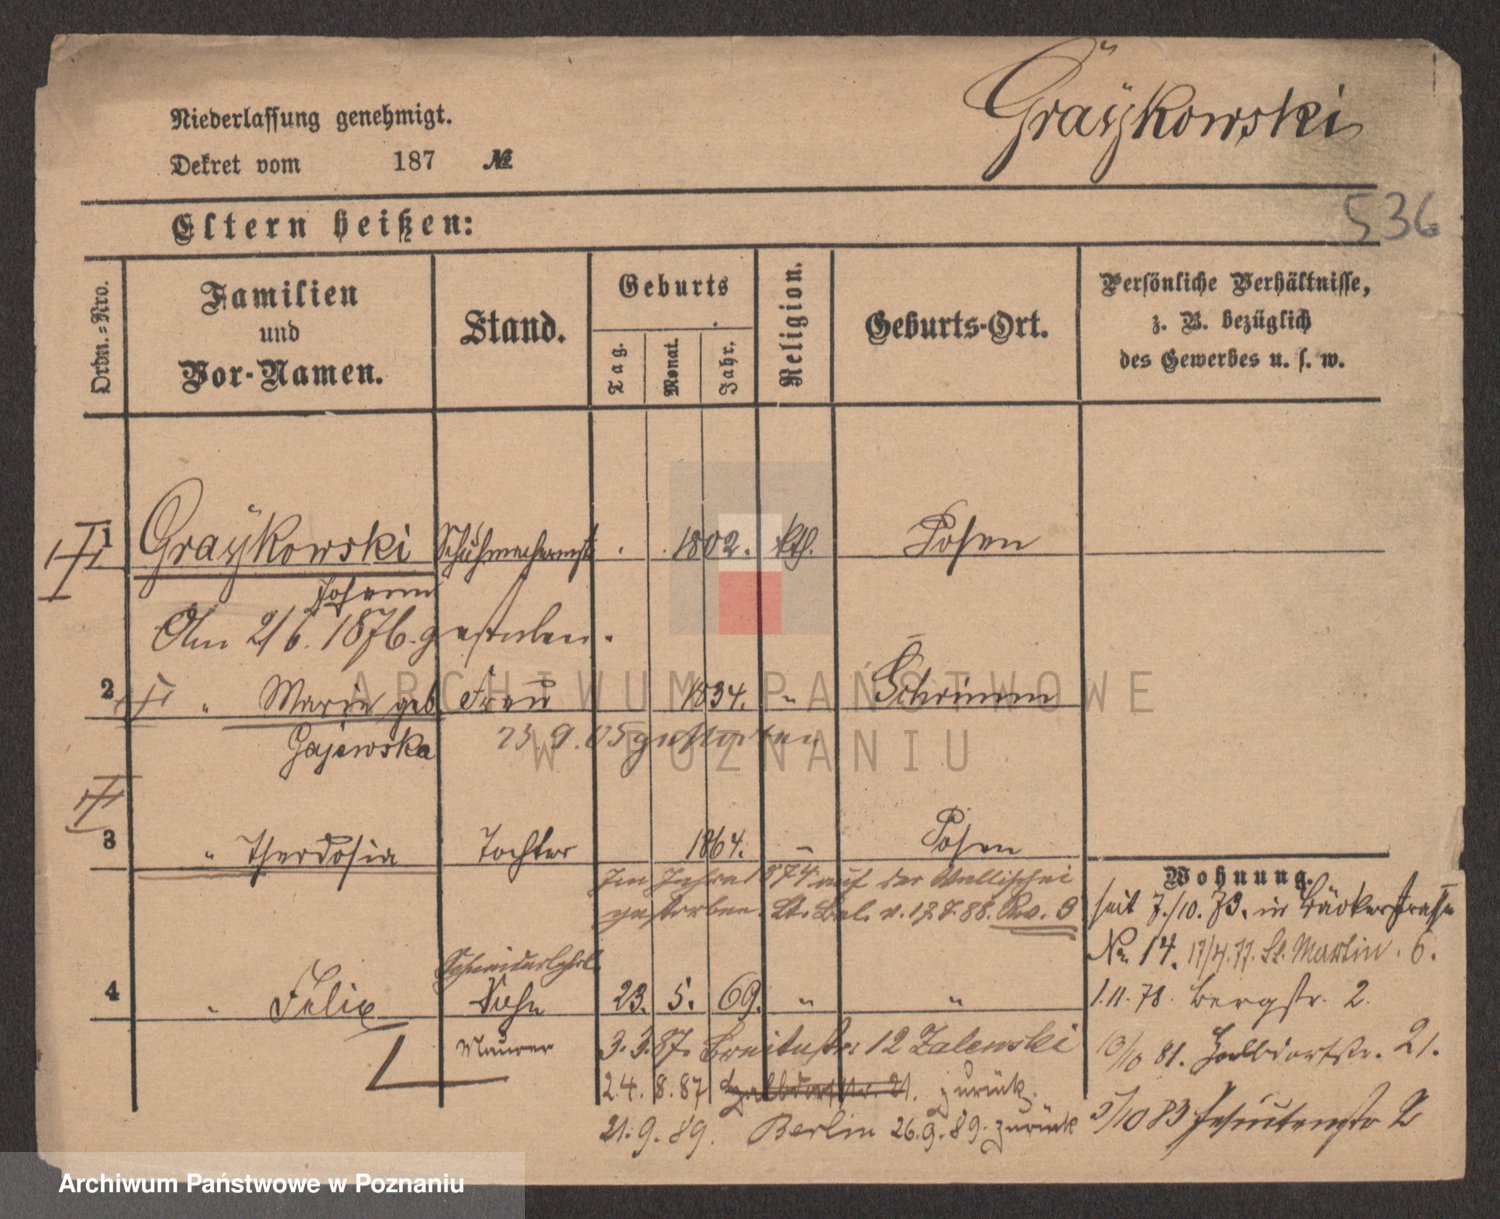 Graÿkowski
Niederlassung genehmigt.
Dekret vom 187 №
536
Eltern heißen:
Ordn.-Nro.
Familien
und
Vor-Namen.
Stand.
Geburts
Tag.
Monat.
Jahr.
Religion.
Geburts-Ort.
Persönliche Verhältnisse,
z. B. bezüglich
des Gewerbes u. s. w.
1 Graÿkowski Schuhmachermstr. 1802. kth. Posen
Johann
Am 2/6. 1876. gestorben.
2 " Marie geb Frau 1834. " Schrimm
Gajewska 23 9. 05 gestorben
3 " Theodosia Tochter 1864. " Posen
Im Jahre 1874 auf der Wallischei
gestorben. Lt. Bel. v. 17.7.88. Rev. 3
Schneiderlehrl.
4 " Felix Sohn 23. 5. 69. " "
Maurer 3.3.87. Breitestr. 12 Zalewski
24. 8. 87 Halbdorfstr. 21. zurück.
21. 9. 89. Berlin 26.9.89. zurück
Wohnung.
seit 7./10. 73. in Bäckerstraße
No. 14. 17/4. 77. St. Martin. 6.
1.11.78. Bergstr. 2.
10/10 81. Halbdorfstr. 21.
5/10 83 Jesuitenstr 2
ARCHIWUM PAŃSTWOWE
W POZNANIU
Archiwum Państwowe w Poznaniu